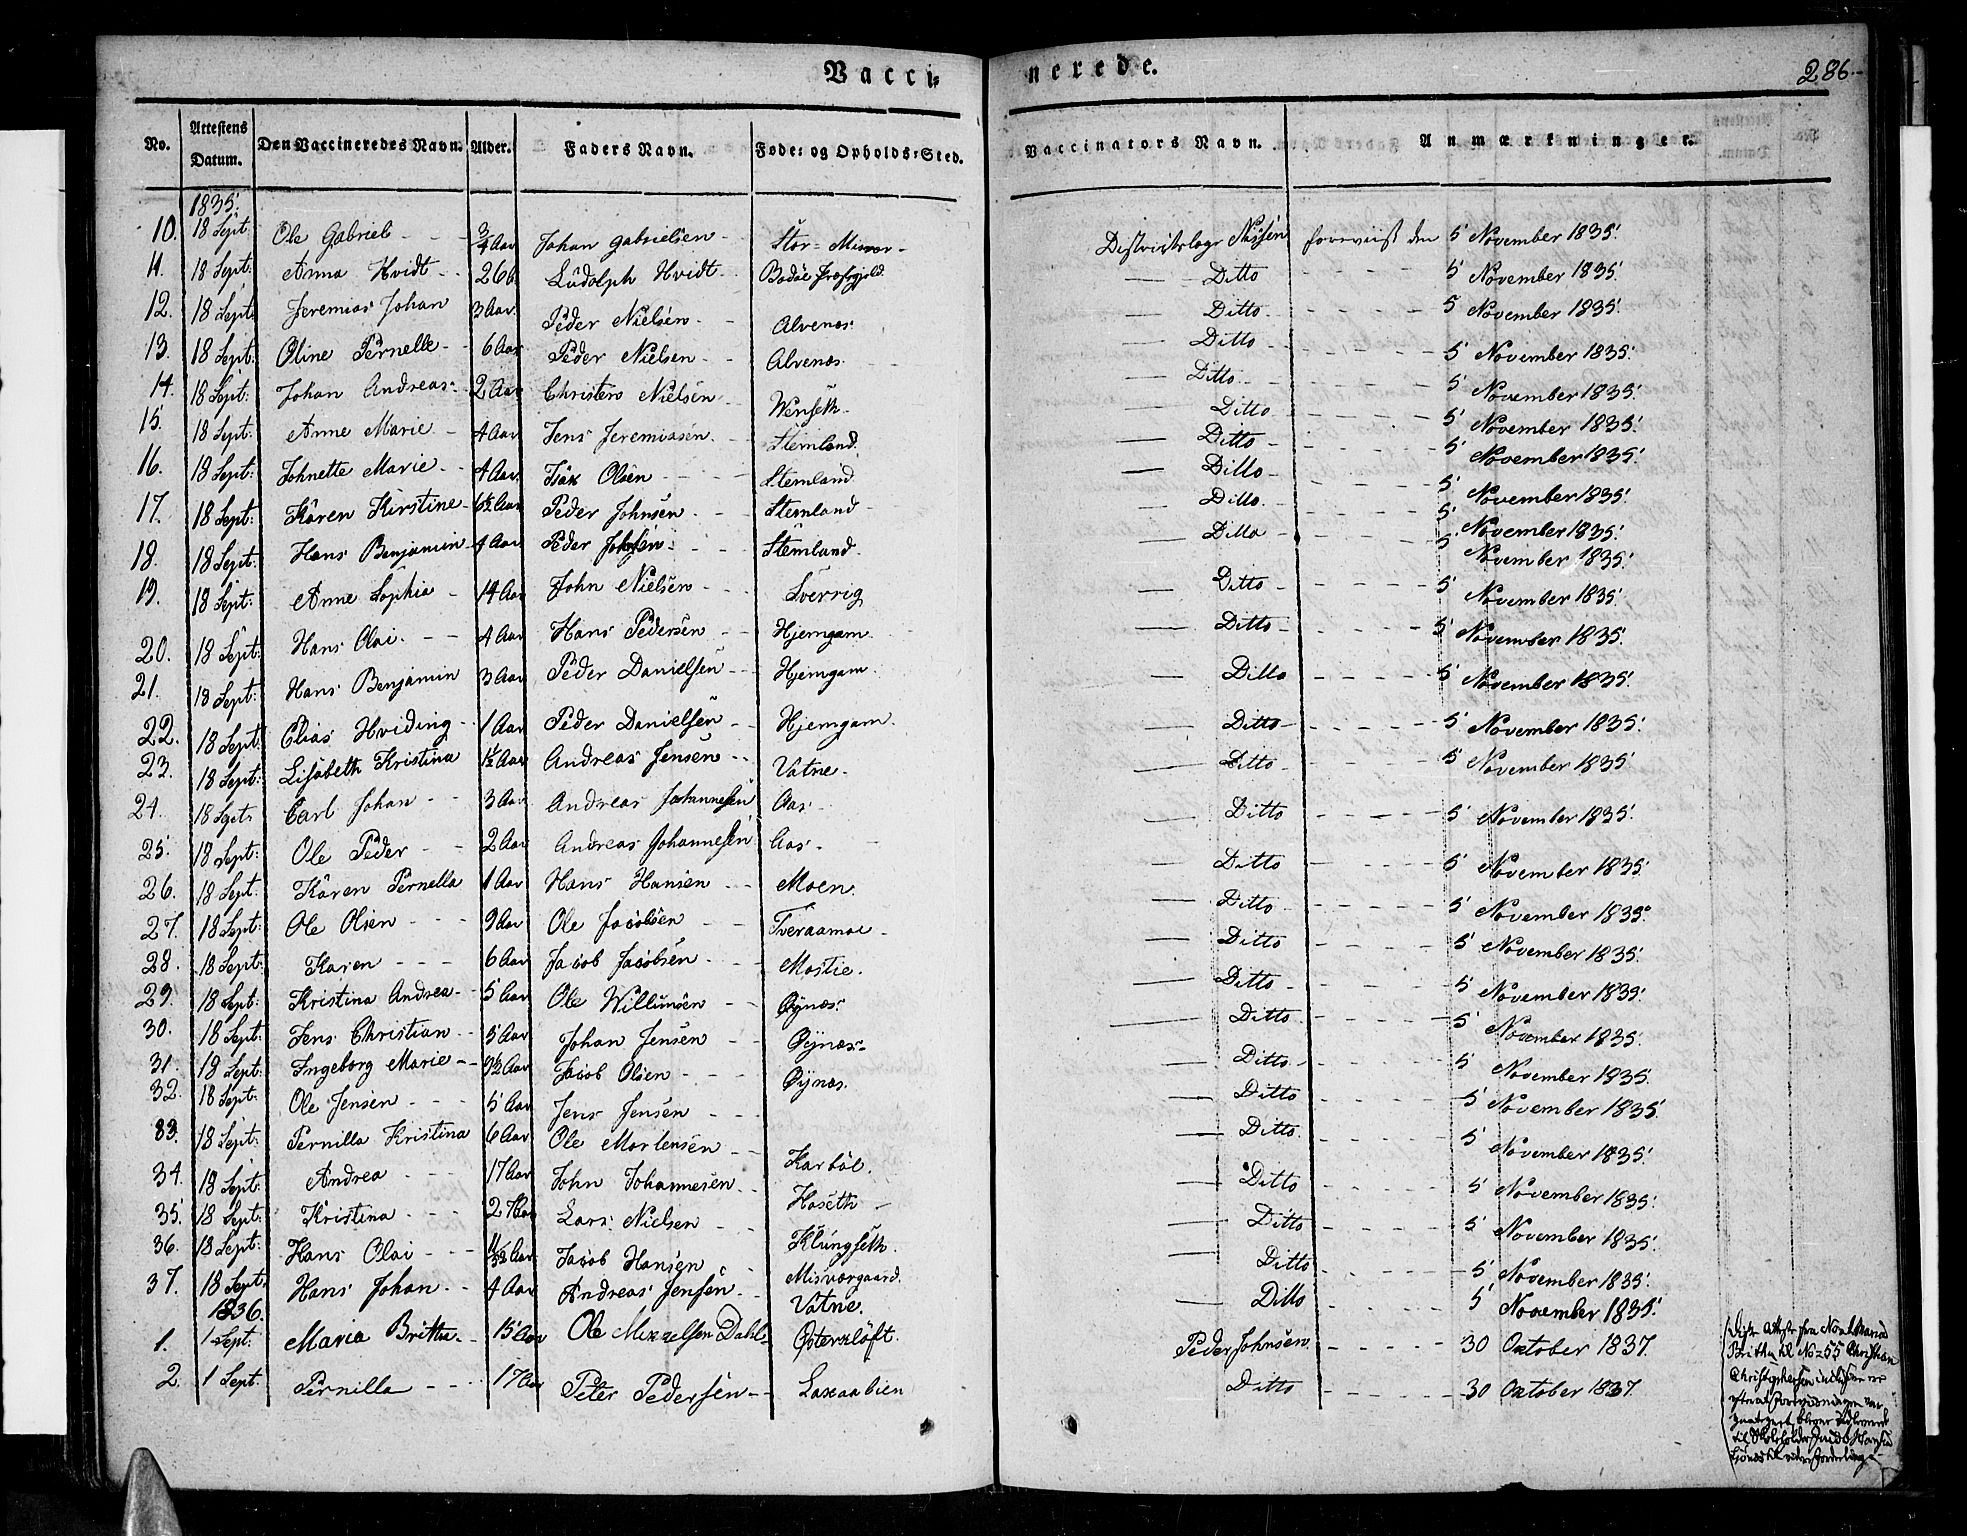 Vacci-nerede.
286.
No. | Attestens Datum. | Den Vaccineredes Navn. | Alder. | Faders Navn. | Føde- og Opholds-Sted. | Vaccinators Navn. | Anmærkninger.
1835.
10. 18 Sept. Ole Gabriel - - 3/4 Aar Johan Gabrielsen - Stor-Misvær - Nissen foreviist den 5 November 1835.
11. 18 Sept. Anna Hvidt - - Ludolph Hvidt - Bodøe Præstegjeld Ditto - - 5 November 1835.
12. 18 Sept. Jeremias Johan 3 Aar Peder Nielsen - Alvenæs Ditto - - 5 November 1835.
13. 18 Sept. Oline Pernelle - 6 Aar Peder Nielsen - Alvenæs. Ditto - - 5 November 1835.
14. 18 Sept. Johan Andreas - 2 Aar Christen Nielsen Wenseth Ditto - - 5 November 1835.
15. 18 Sept. Anne Marie - 4 Aar Jens Jeremiasen - Stemland. Ditto - - 5 November 1835.
16. 18 Sept. Johnette Marie - 4 Aar Isak Olsen - - Stemland Ditto - - 5 November 1835.
17. 18 Sept. Karen Kirstine - 6½ Aar Peder Johnsen - Stemland - Ditto - - 5 November 1835.
18. 18 Sept. Hans Benjamin 4 Aar Peder Johnsen - Stemland. Ditto - - 5 November 1835.
19. 18 Sept. Anne Sophia - 14 Aar John Nielsen - - Sverrig Ditto - - 5 November 1835.
20. 18 Sept. Hans Olai - - 4 Aar Hans Pedersen - Hjemgam. Ditto - - 5 November 1835.
21. 18 Sept. Hans Benjamin 3 Aar Peder Danielsen - Hjemgam. Ditto - - 5 November 1835.
22. 18 Sept. Elias Hviding - 1 Aar Peder Danielsen - Hjemgam. Ditto - - 5 November 1835.
23. 18 Sept. Lisabeth Kristina 1½ Aar Andreas Jensen - Vatne - Ditto - - 5 November 1835
24. 18 Sept. Carl Johan - - 3 Aar Andreas Johannesen Aas - Ditto - - 5 November 1835.
25. 18 Sept. Ole Peder - - 2 Aar Andreas Johannesen Aas - Ditto - - 5 November 1835.
26. 18 Sept. Karen Pernella 1 Aar Hans Hansen - - Moen. Ditto - - 5 November 1835.
27. 18 Sept. Ole Olsen - - 9 Aar Ole Jacobsen - - Tveraamoe - Ditto - - 5 November 1835.
28. 18 Sept. Karen - - - 6 Aar Jacob Jacobsen - - Mostie. Ditto - - 5 November 1835.
29. 18 Sept. Kristina Andrea - 5 Aar Ole Willumsen - - Øynæs. Ditto - - 5 November 1835.
30. 18 Sept. Jens Christian - 5 Aar Johan Jensen - - Øynæs - Ditto - - 5 November 1835.
31. 18 Sept. Ingeborg Marie - 9½ Aar Jacob Olsen - - Øynæs. Ditto - - 5 November 1835.
32. 18 Sept. Ole Jensen - - 5 Aar Jens Jensen - - Ditto - - 5 November 1835.
33. 18 Sept. Pernilla Kristina 6 Aar Ole Mortensen - - Karbøl. Ditto - - 5 November 1835.
34. 18 Sept. Andrea - - 17 Aar John Johannesen - Haseth - Ditto - - 5 November 1835.
35. 18 Sept. Kristina - - 2 Aar Lars Nielsen - Klungseth. Ditto - - 5 November 1835.
36. 18 Sept. Hans Olai - - Jacob Hansen - Misværgaard. Ditto - - 5 November 1835.
37. 18 Sept. Hans Johan - - 4 Aar Andreas Jensen - Vatne. Ditto 5 November 1835.
1836.
1. 1 Sept. Maria Britha - 15 Aar Ole Mikkelsen Dahl Østerkløft. Peder Johnsen - 30 Oktober 1837.
2. 1 Sept. Pernilla - - - 17 Aar Peter Pedersen - Laxaalien Ditto - - - 30 Oktober 1837.
Disse Attester fra No 1 Maria
Britha til No 55 Christian